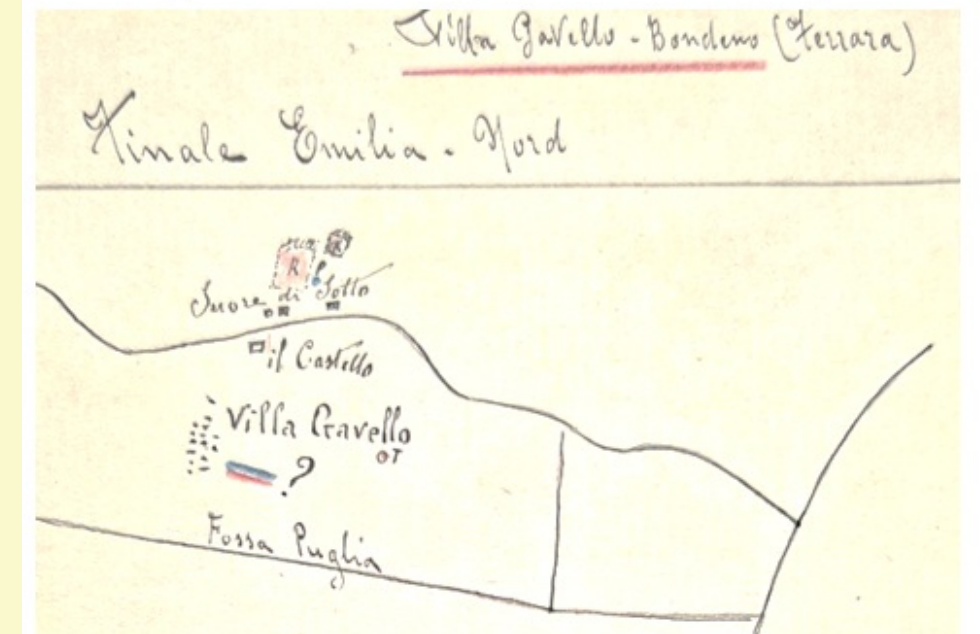 Villa Gavello - Bondeno (Ferrara)
Finale Emilia - Nord
R
Suore di Sotto
il Castello
Villa Gavello
T
?
Fossa Puglia